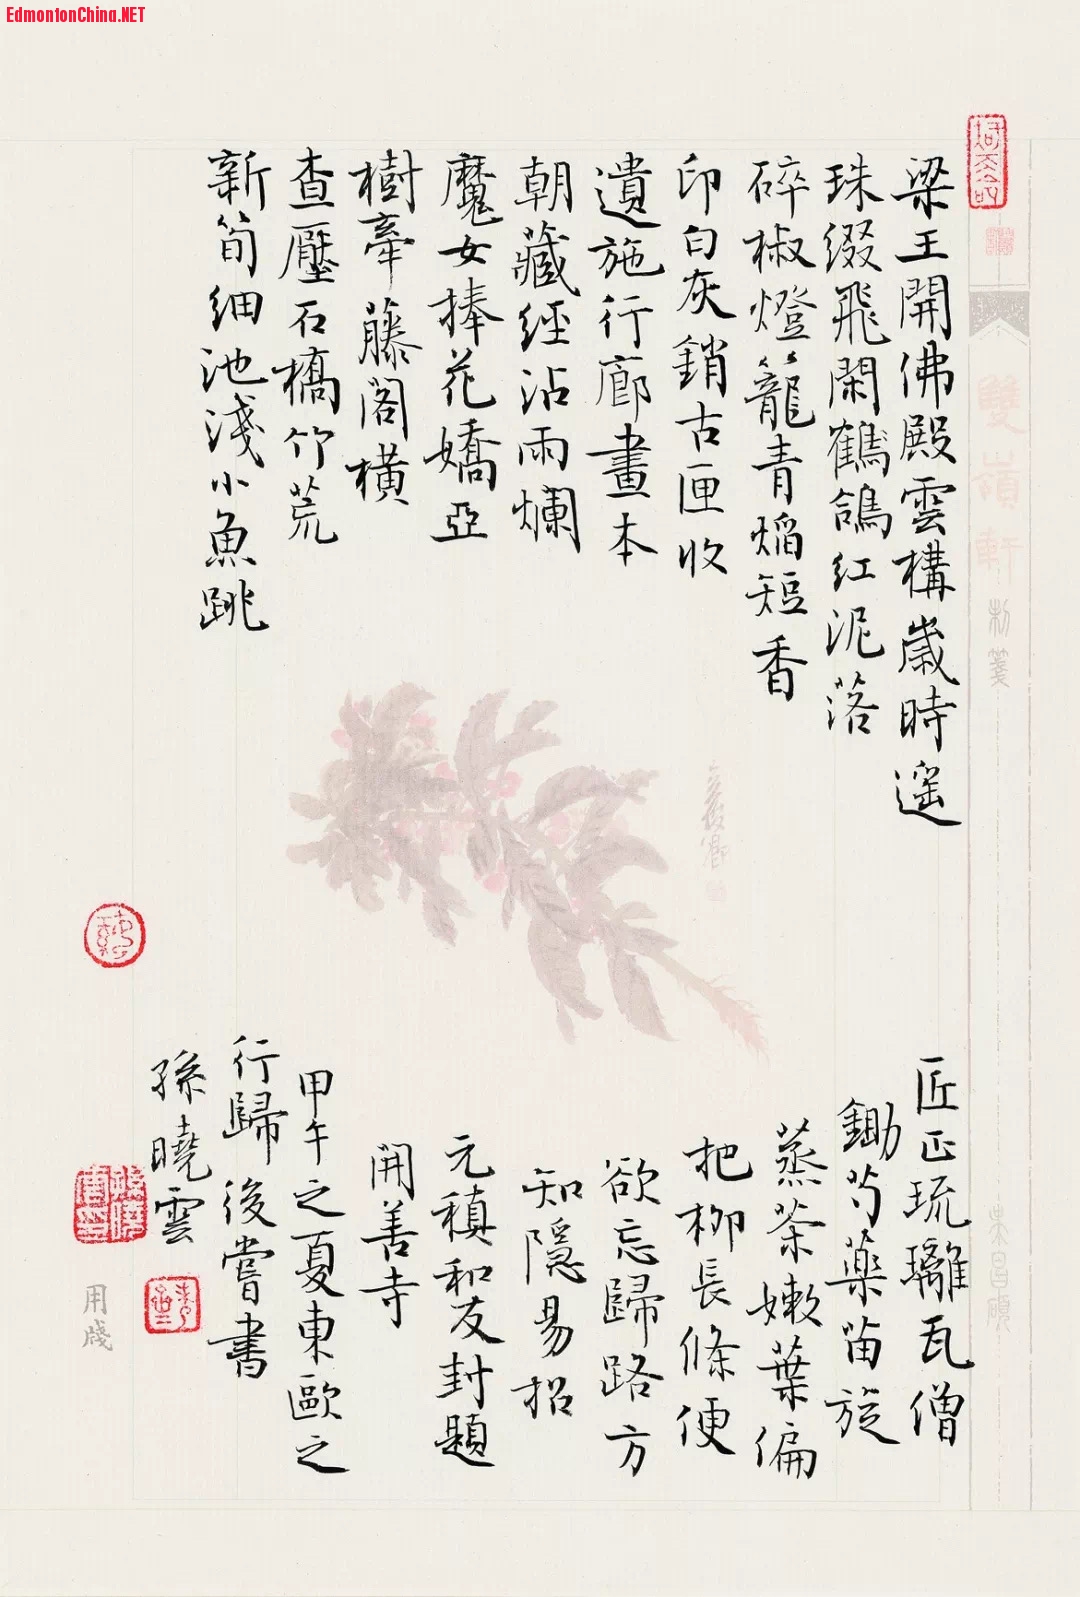 EdmontonChina.NET
梁王開佛殿雲構歲時遥
珠綴飛閑鶴鴿紅泥落
碎椒燈籠青焰短香
印白灰銷古匣收
遺施行廊畫本
朝藏經沾雨爛
魔女捧花嬌亞
樹牽藤閣橫
查壓石橋竹荒
新筍細池淺小魚跳
匠正琉璃瓦僧
鋤芍藥苗旋
蒸茶嫩葉偏
把柳長條便
欲忘歸路方
知隱易招
元稹和友封題
開善寺
甲午之夏東歐之
行歸後嘗書
孫曉雲
雙嶺軒制箋
用牋